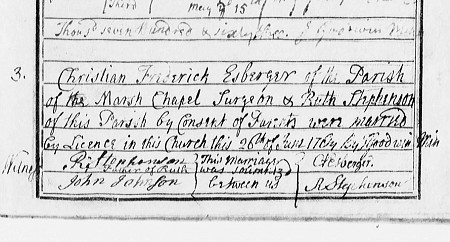 Third
May 15
Thous.d seven Hundred & sixty three. J. Goodwin Min
3.
Christian Frederick Esberger of the Parish
of the Marsh Chapel Surgeon & Ruth Stephenson
of this Parish by Consent of Parents were married
by Licence in this Church this 26th of June 1763 by J. Goodwin Min
Witness Stephenson This Marriage C F Esberger
Father of Ruth was solemnized
John Johnson between us R Stephenson